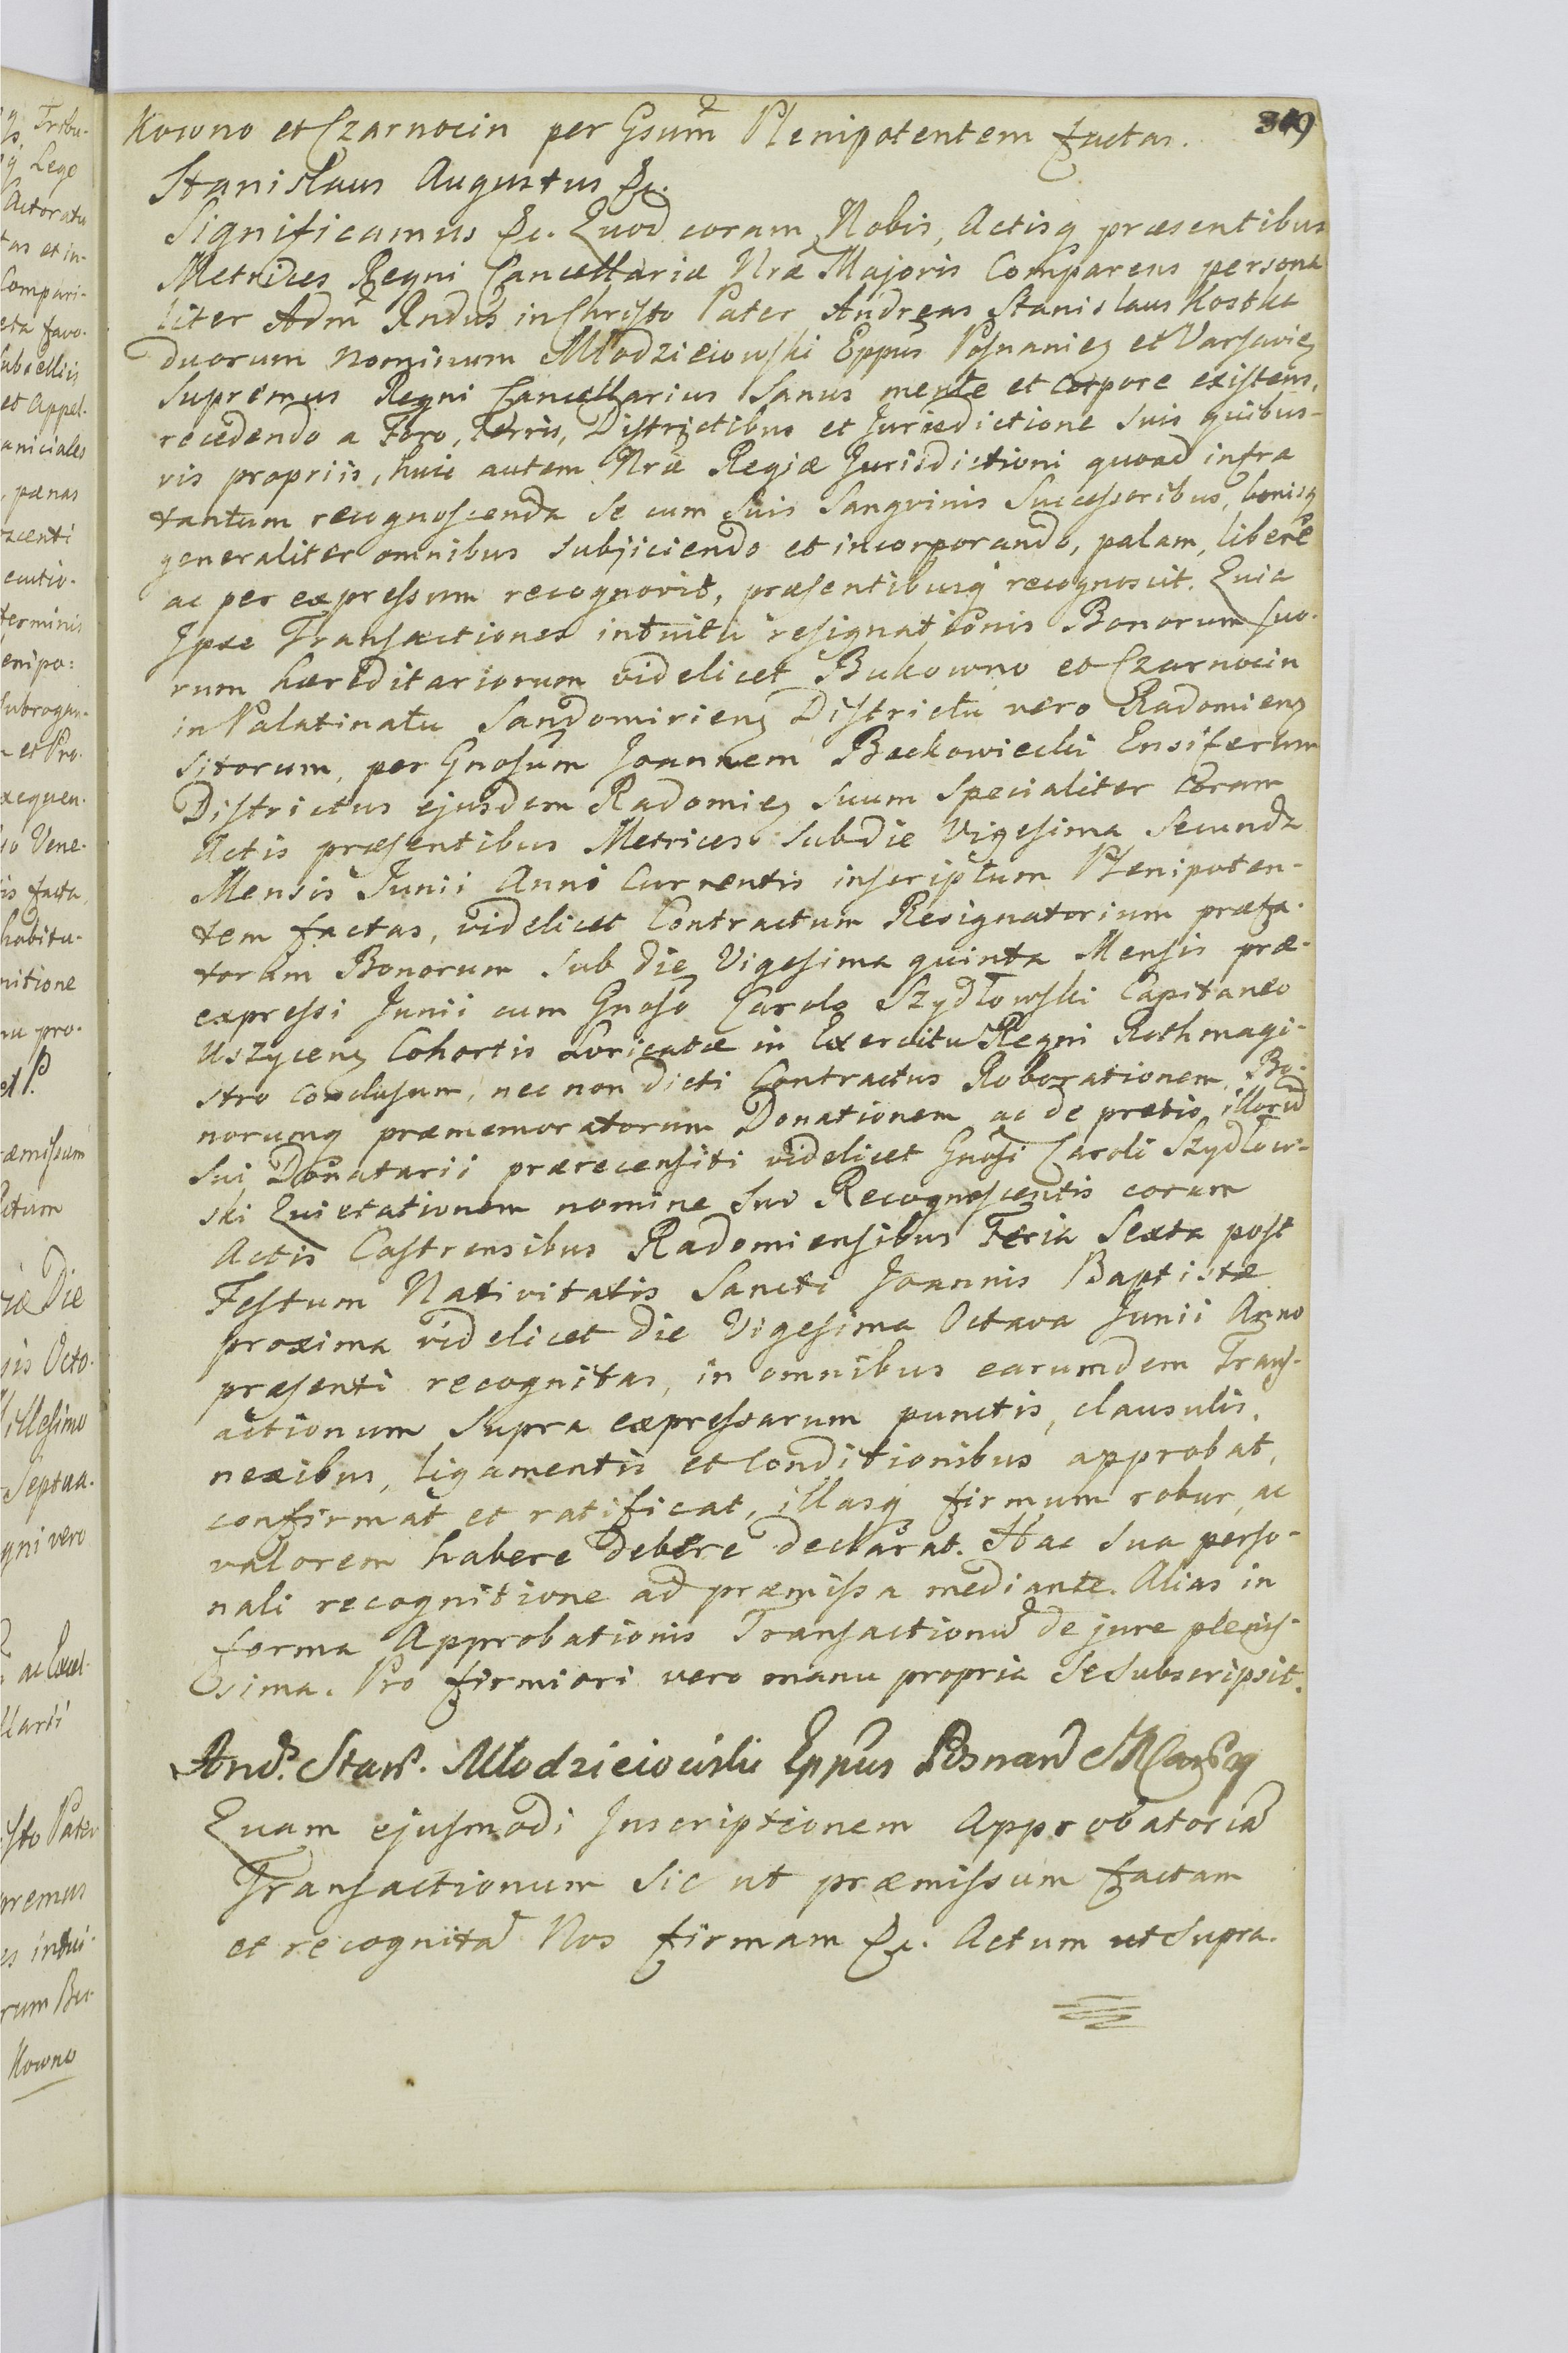 kowno et Czarnocin per Gsum̃ Plenipotentem factas. 309
Stanislaus Augustus &c.
Significamus &c. Quod coram Nobis, Actisq̃ præsentibus
Metrices Regni Cancellariæ Nræ Majoris Comparens persona
liter Adm̃ Rndus in Christo Pater Andreas Stanislaus Kostka
duorum nominum Młodzieiowski Eppus Posnanieñ et Varsavieñ
Supremus Regni Cancellarius Sanus mente et Corpore existens,
recedendo a Foro, Terris, Districtibus et Jurisdictione suis quibus-
vis propriis, huic autem Nræ Regiæ Jurisdictioni quoad infra
tantum recognoscenda se cum suis Sangvinis Successoribus, bonisq̃
generaliter omnibus subjiciendo et incorporando, palam, libere
ac per expressum recognovit, præsentibusq̃ recognoscit. Quia
Ipse Transactiones intuitu resignationis Bonorum suo-
rum hæreditariorum videlicet Bukowno et Czarnocin
in Palatinatu Sandomirienz Districtu vero Radomienz
sitorum, per Gnosum Joannem Backowiecki Ensiferum
Districtus ejusdem Radomienz suum specialiter coram
Actis præsentibus Metrices sub die Vigesima Secunda
Mensis Junii Anni Currentis inscriptum Plenipoten-
tem factas, videlicet Contractum Resignatorium præfa-
torum Bonorum sub die Vigesima quinta Mensis præ-
expressi Junii cum Gnoso Carolo Szydłowski Capitaneo
Uszycenz Cohortis Loricatæ in Exercitu Regni Rothmagi-
stro conclusum, nec non dicti Contractus Roborationem, Bo-
norumq̃ præmemoratorum Donationem ac de pretio illoru͠
sui Donatarii prærecensiti videlicet Gnosi Caroli Szydłow-
ski Quietationem nomine sui Recognoscentis coram
Actis Castrensibus Radomiensibus Feria Sexta post
Festum Nativitatis Sancti Joannis Baptistæ
proxima videlicet die Vigesima Octava Junii Anno
præsenti recognitas, in omnibus earumdem Trans-
actionum supra expressarum punctis, clausulis,
nexibus, ligamentis et Conditionibus approbat,
confirmat et ratificat, illasq̃ firmum robur ac
valorem habere debere declarat. Hac sua perso-
nali recognitione ad præmissa mediante. Alias in
forma Approbationis Transactionu͠ de jure pleniss-
sima. Pro firmiori vero manu propria se subscripsit.
And. Stan. Młodzieiowski Eppus Posnan
Quam ejusmodi Inscriptionem Approbatoria͠
Transactionum sic ut præmissum factam
et recognita͠ Nos firmam &c. Actum ut supra.